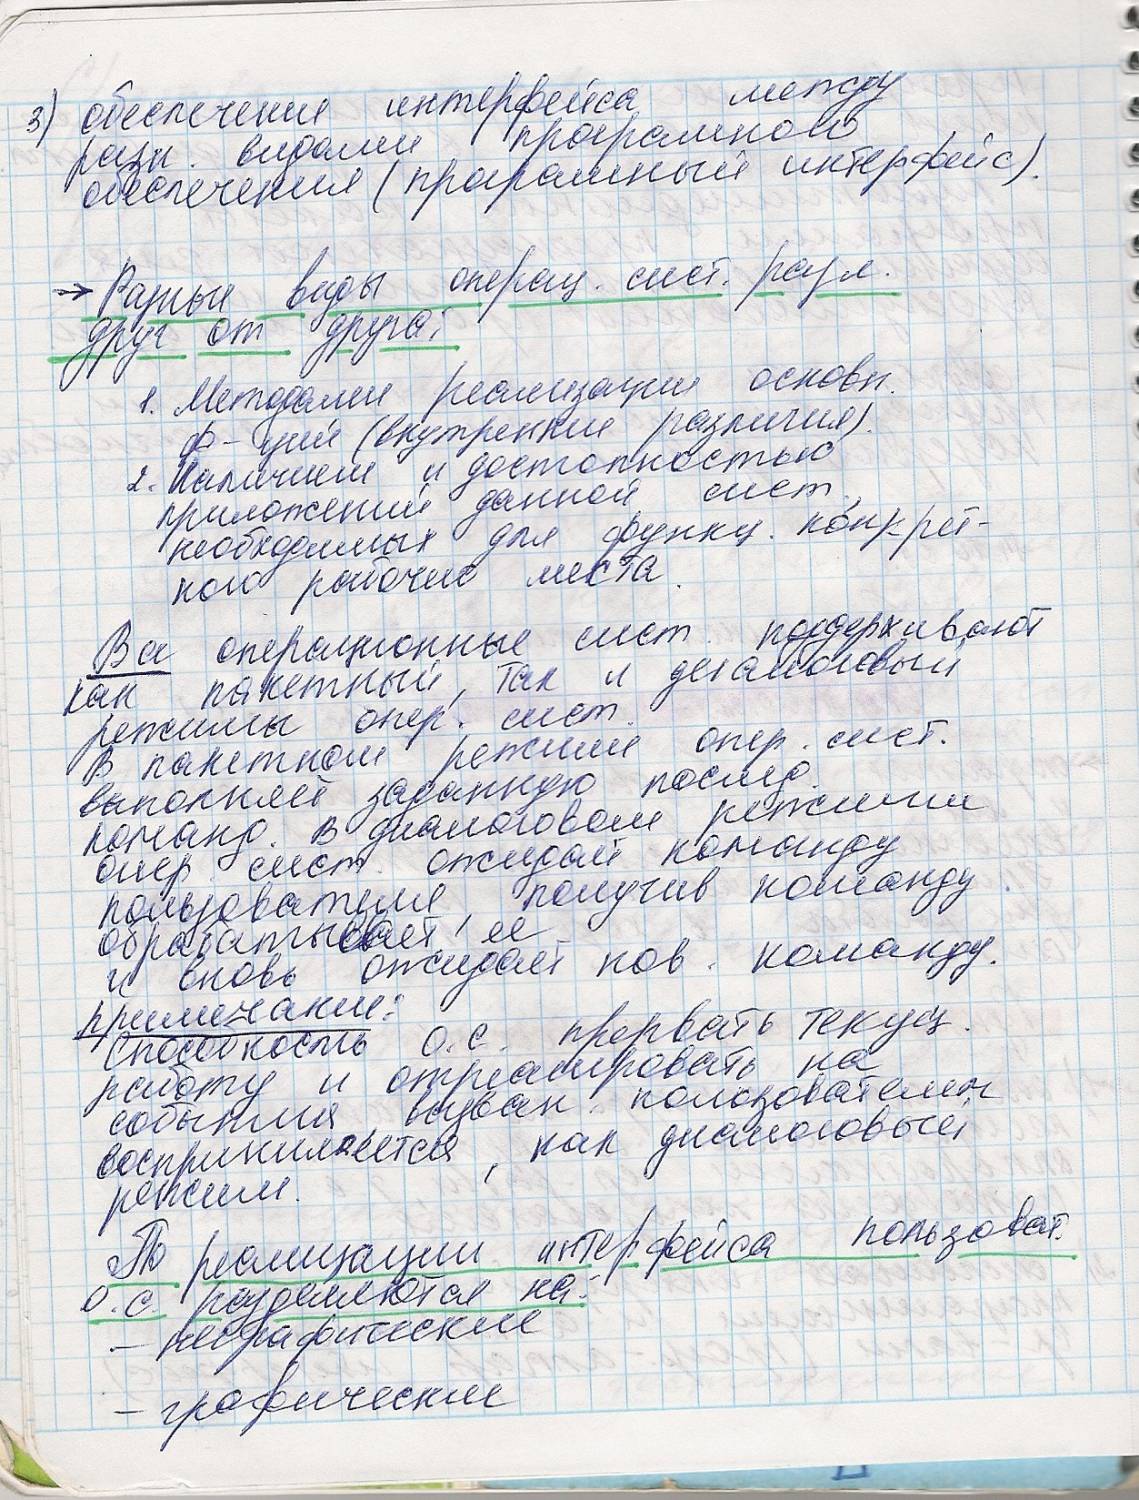 3) обеспечения интерфейса между
разн. видами програмного
обеспечения (програмный интерфейс).
→ Разные виды операц. сист. разл.
друг от друга:
1. Методами реализации основн.
ф-ций (внутренние различия).
2. Наличием и доступностью
приложений данной сист.,
необходимых для функц. конкрет-
ного рабочего места.
Все операционные сист. поддерживают
как пакетный, так и диалоговый
режимы опер. сист.
В пакетном режиме опер. сист.
выполняет заданную послед.
команд. В диалоговом режиме
опер. сист. ожидает команду
пользователя, получив команду
обрабатывает ее
и вновь ожидает нов. команду.
Примечание:
Способность О.С. прервать текущ.
работу и отреагировать на
события, вызван. пользователем
воспринимается, как диалоговый
режим.
По реализации интерфейса пользоват.
О.С. разделяются на:
- неграфические
- графические